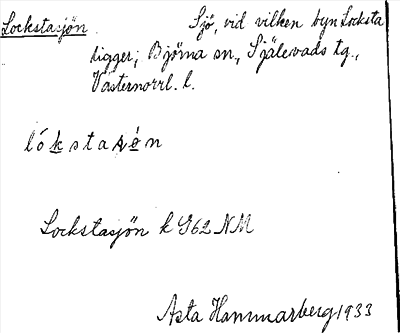 Lockstasjön Sjö, vid vilken byn Locksta
ligger; Björna sn., Själevads tg.,
Västernorrl. l.
lókstasǿn
Lockstasjön k G62 NM
Asta Hammarberg 1933